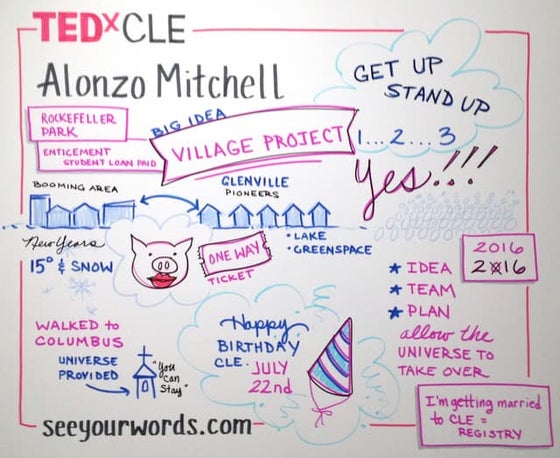 TEDxCLE
Alonzo Mitchell
GET UP
STAND UP
1...2...3
Yes!!!
ROCKEFELLER
PARK
ENTICEMENT
STUDENT LOAN PAID
BIG IDEA
VILLAGE PROJECT
BOOMING AREA
GLENVILLE
PIONEERS
• LAKE
• GREENSPACE
New Years
15° & SNOW
ONE WAY
TICKET
2016
2x16
★ IDEA
★ TEAM
★ PLAN
allow the
UNIVERSE TO
TAKE OVER
WALKED to
COLUMBUS
UNIVERSE
PROVIDED
"You
can
Stay"
Happy
BIRTHDAY
CLE.
JULY
22nd
I'm getting married
to CLE =
REGISTRY
seeyourwords.com